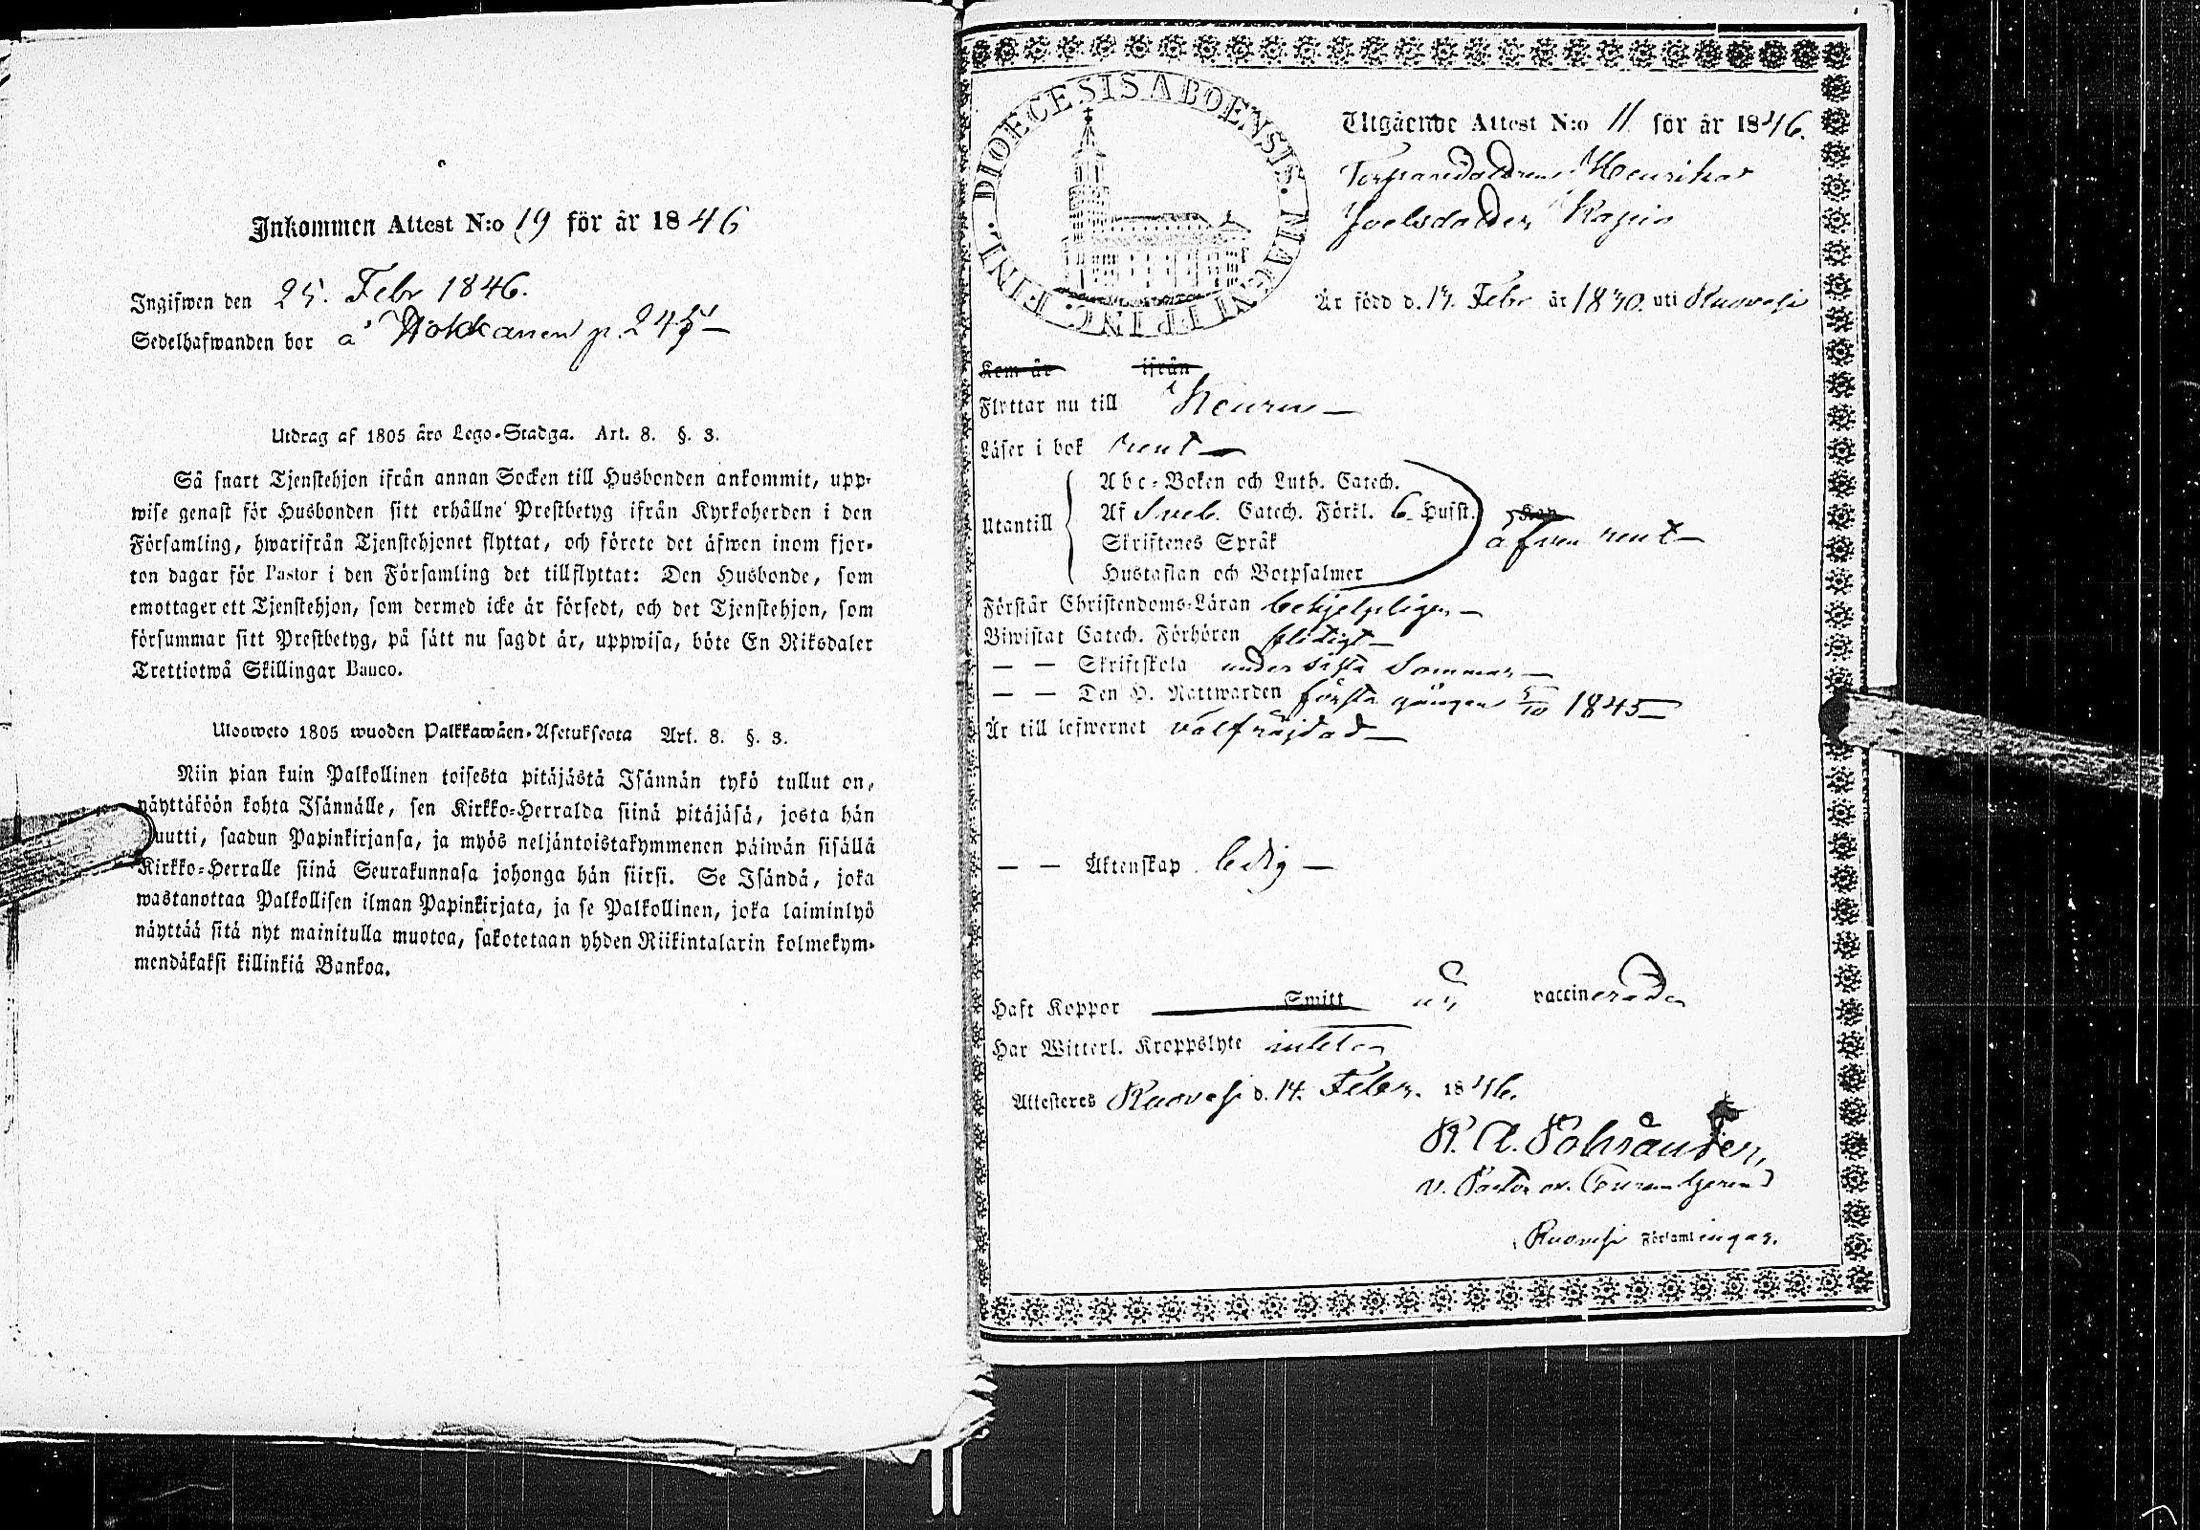 Inkommen Attest N:o 19 för år 1846
Ingifwen den 25. Febr 1846.
Sedelhafwanden bor å p. 245
Utdrag af 1805 års Lego-Stadga. Art. 8. §. 3.
Så snart Tjenstehjon ifrån annan Socken till Husbonden ankommit, upp-
wise genast för Husbonden sitt erhållne Prestbetyg ifrån Kyrkoherden i den
Församling, hwarifrån Tjenstehjonet flyttat, och förete det äfwen inom fjor-
ton dagar för Pastor i den Församling det tillflyttat: Den Husbonde, som
emottager ett Tjenstehjon, som dermed icke är försedt, och det Tjenstehjon, som
försummar sitt Prestbetyg, på sätt nu sagdt är, uppwisa, böte En Riksdaler
Trettiotwå Skillingar Banco.
Uloosweto 1805 wuoden Palkkawäen-Asetuksesta Art. 8. §. 3.
Niin pian kuin Palkollinen toisesta pitäjästä Isännän tykö tullut on,
näyttäköön kohta Isännälle, sen Kirkko-Herralda siinä pitäjäsä, josta hän
muutti, saadun Papinkirjansa, ja myös neljäntoistakymmenen päiwän sisällä
Kirkko-Herralle siinä Seurakunnasa johonga hän siirsi. Se Isändä, joka
wastanottaa Palkollisen ilman Papinkirjata, ja se Palkollinen, joka laiminlyö
näyttää sitä nyt mainitulla muotoa, sakotetaan yhden Riikintalarin kolmekym-
mendäkaksi killinkiä Bankoa.
DIOECESIS ABOENSIS. MAGNI PRINC. FINL.
Utgående Attest N:o 11 för år 1846.
Torparedottren Henrika
Joelsdotter Kapio
Är född d. 17. Febr år 1830. uti Ruovesi
Kom år ifrån
Flyttar nu till Keuru
Läser i bok rent
Utantill
Abc-Boken och Luth. Catech.
Af Sveb. Catech. Förkl. 6 Hufst. Kap
Skriftenes Språk
Hustaflan och Botpsalmer
äfven rent
Förstår Christendoms-Läran behjelpligen
Biwistat Catech. Förhören flitigt
— — Skriftskola under sista Sommar
— — Den H. Nattwarden första gången 5/10 1845
Är till lefwernet välfräjdad
— — Äktenskap ledig
Haft Koppor Smitt är vaccinerad
Har Witterl. Kroppslyte intet
Attesteres Ruovesi d. 14. Febr. 1846.
K. A.
v. Pastor
Ruovesi Församlingar.